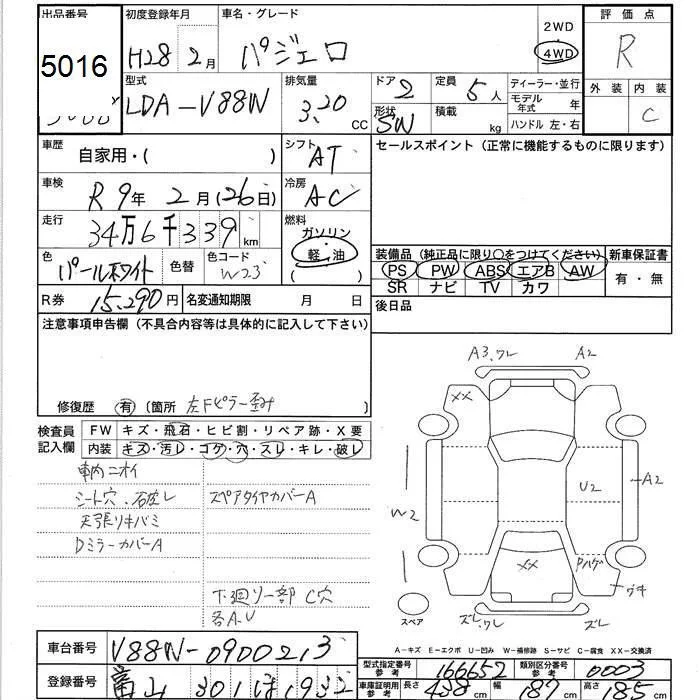 出品番号
5016
初度登録年月
H28 2月
車名・グレード
パジェロ
2WD
4WD
評価点
R
外装 内装
C
型式
LDA-V88W
排気量
3.20 CC
ドア 2
形状 SW
定員 5人
積載 kg
ディーラー・並行
モデル年式 年
ハンドル 左・右
車歴
自家用・( )
シフト AT
冷房 AC
車検
R9年 2月(26日)
走行
34万6千339 km
燃料
ガソリン
軽・油
( )
色
パールホワイト
色替
色コード
W23
R券 15,290円
名変通知期限 月 日
セールスポイント(正常に機能するものに限ります)
装備品(純正品に限り○をつけてください)
PS PW ABS エアB AW
SR ナビ TV カワ
新車保証書
有・無
後日品
注意事項申告欄(不具合内容等は具体的に記入して下さい)
修復歴 有(箇所 左Fピラー歪み
検査員記入欄
FW キズ・飛石・ヒビ割・リペア跡・X要
内装 キズ・汚レ・コゲ・穴・スレ・キレ・破レ
車内ニオイ
シート穴・破レ
スペアタイヤカバーA
天張リキバミ
DミラーカバーA
下廻リ一部C穴
各A.U
A3.ワレ
A2
XX
W2
U2
A2
XX
Pハゲ
ウキ
スペア
ズレ.ワレ
ズレ
A-キズ E-エクボ U-凹み W-補修跡 S-サビ C-腐食 XX-交換済
車台番号 V88W-0900213
登録番号 富山 301 ほ 1932
型式指定番号 参考 16652
類別区分番号 参考 0003
車庫証明用 参考 長さ 438cm 幅 187cm 高さ 185cm